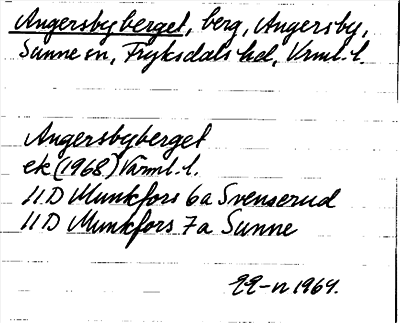 Angersbyberget, berg, Angersby,
Sunne sn, Fryksdals hd, Vrml. l.
Angersbyberget
ek (1968) Värml. l.
11D Munkfors 6a Svenserud
11D Munkfors 7a Sunne
1969.